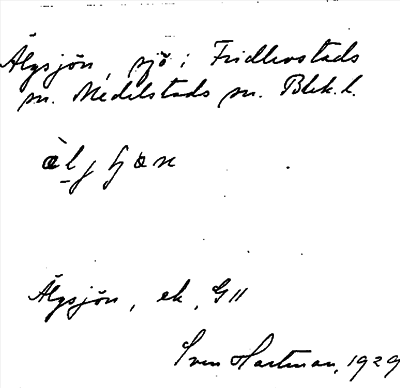 Älgsjön, sjö i Fridlevstads
sn. Medelstads sn. Blek. l.
Älgsjön, ek, G 11
Sven Hartman, 1929